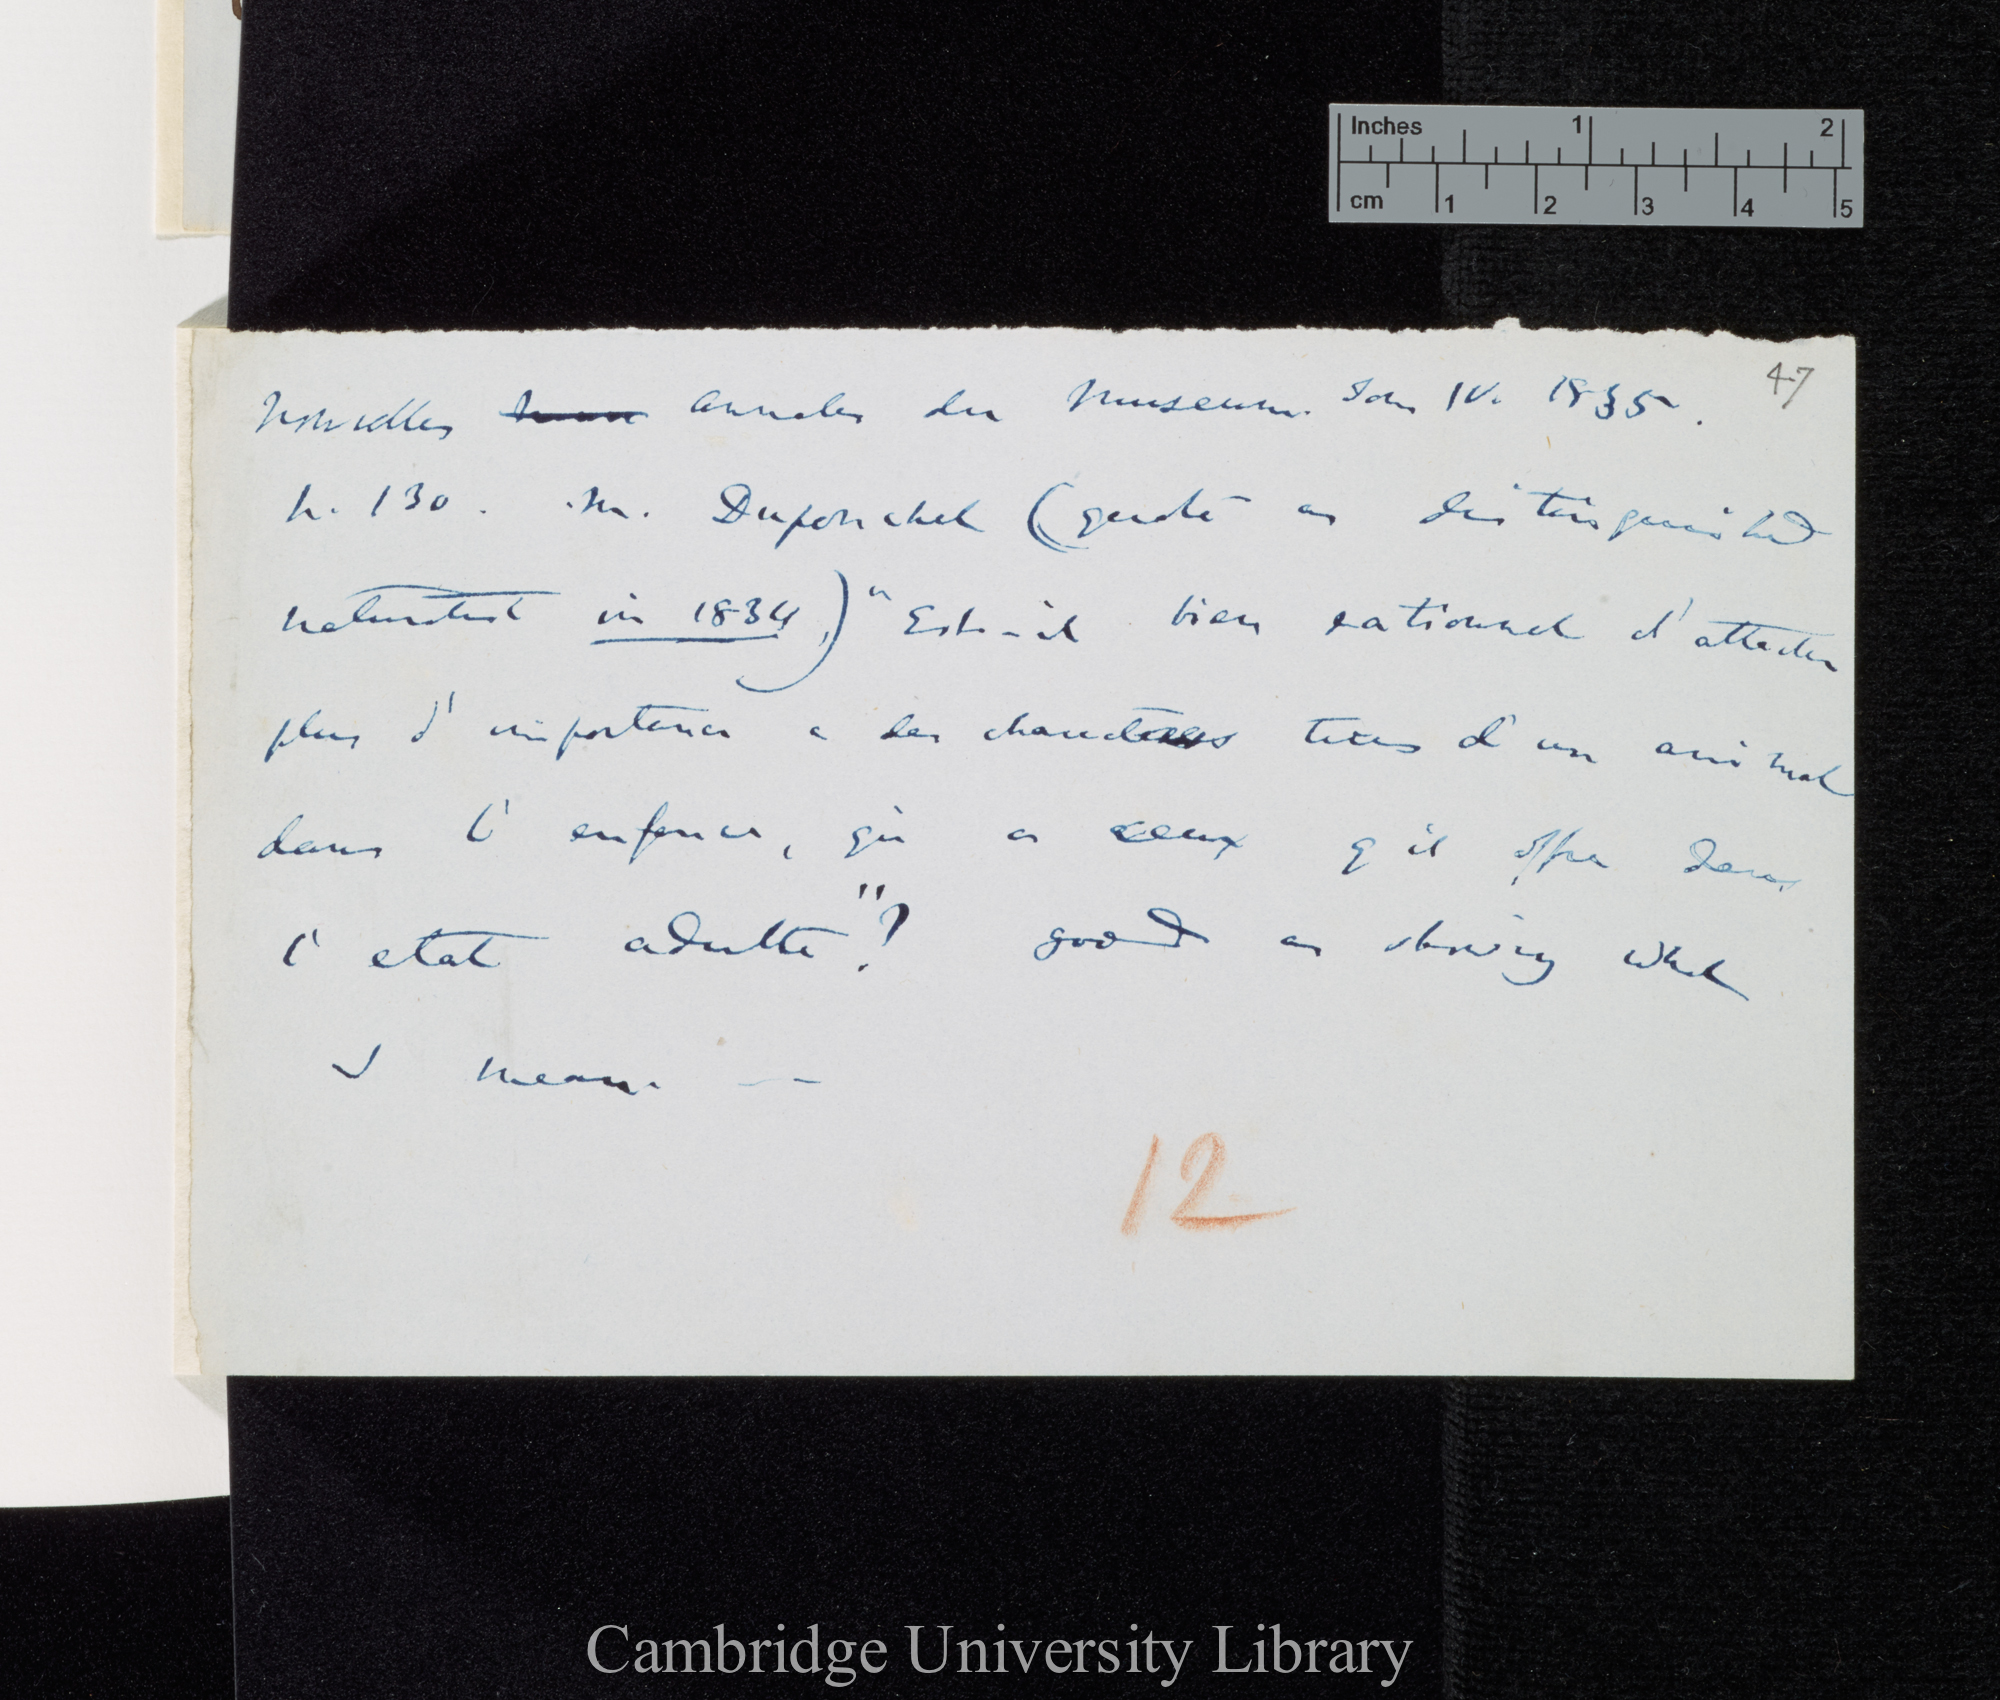 Inches 1 2
cm 1 2 3 4 5
47
Nouvelles annales du Museum. Tom IV. 1835.
p. 130. M. Duponchel (quote as distinguished
naturalist in 1834.) "Est-il bien rationnel d'attacher
plus d'importance a des characteres tires d'un animal
dans l'enfance, qu' a ceux q'il offre dans
l'etat adulte"? good as showing what
I mean. —
12
Cambridge University Library